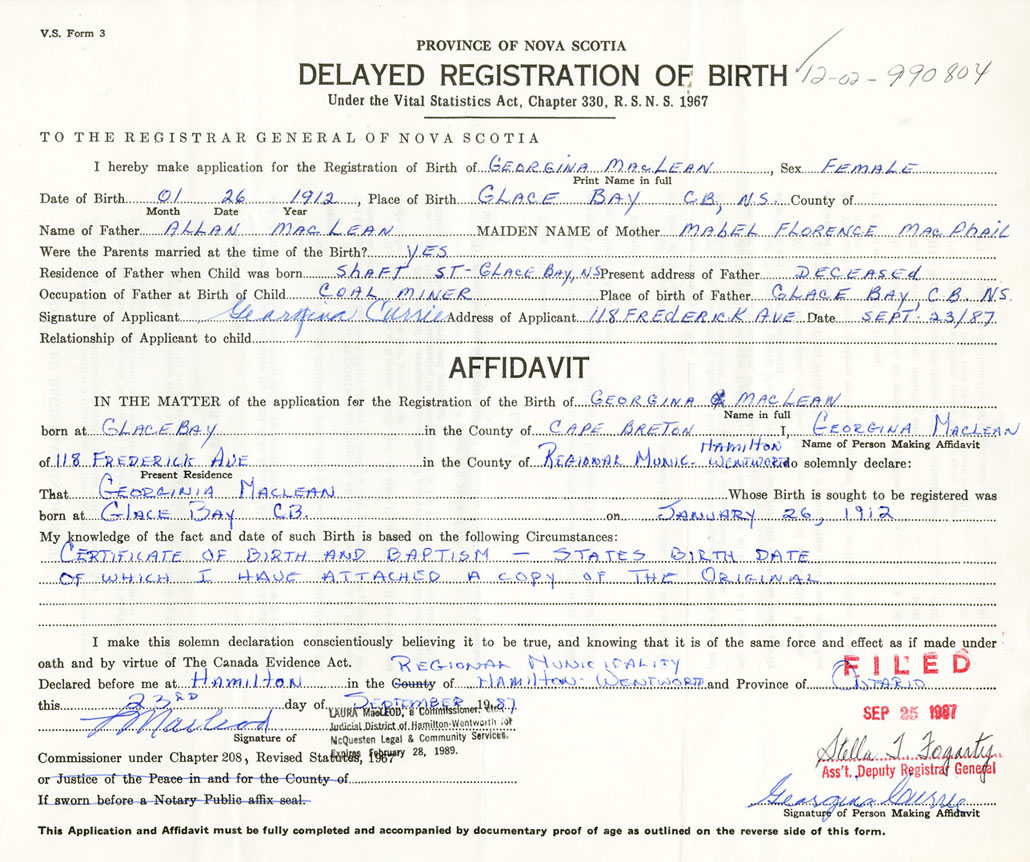 V.S. Form 3
PROVINCE OF NOVA SCOTIA
DELAYED REGISTRATION OF BIRTH 12-02-990804
Under the Vital Statistics Act, Chapter 330, R. S. N. S. 1967
TO THE REGISTRAR GENERAL OF NOVA SCOTIA
I hereby make application for the Registration of Birth of GEORGINA MACLEAN, Sex FEMALE
Print Name in full
Date of Birth 01 26 1912, Place of Birth GLACE BAY CB, N.S. County of
Month Date Year
Name of Father ALLAN MACLEAN MAIDEN NAME of Mother MABEL FLORENCE MACPHAIL
Were the Parents married at the time of the Birth? YES
Residence of Father when Child was born SHAFT ST-GLACE BAY, NS Present address of Father DECEASED
Occupation of Father at Birth of Child COAL MINER Place of birth of Father GLACE BAY, C.B. NS.
Signature of Applicant Georgina Currie Address of Applicant 118 FREDERICK AVE Date SEPT. 23/87
Relationship of Applicant to child
AFFIDAVIT
IN THE MATTER of the application for the Registration of the Birth of GEORGINA MACLEAN
Name in full
born at GLACE BAY in the County of CAPE BRETON I, GEORGINA MACLEAN
HAMILTON Name of Person Making Affidavit
of 118 FREDERICK AVE in the County of REGIONAL MUNIC- WENTWORTH do solemnly declare:
Present Residence
That GEORGINIA MACLEAN Whose Birth is sought to be registered was
born at GLACE BAY CB. on JANUARY 26, 1912
My knowledge of the fact and date of such Birth is based on the following Circumstances:
CERTIFICATE OF BIRTH AND BAPTISM - STATES BIRTH DATE
OF WHICH I HAVE ATTACHED A COPY OF THE ORIGINAL
I make this solemn declaration conscientiously believing it to be true, and knowing that it is of the same force and effect as if made under
oath and by virtue of The Canada Evidence Act. REGIONAL MUNICIPALITY
FILED
Declared before me at HAMILTON in the County of HAMILTON-WENTWORTH and Province of ONTARIO
this 23RD day of SEPTEMBER 1987
SEP 25 1987
L MacLeod
LAURA MacLEOD, a Commissioner, etc.,
Judicial District of Hamilton-Wentworth for
McQuesten Legal & Community Services.
Expires February 28, 1989.
Signature of
Commissioner under Chapter 208, Revised Statutes, 1967
Stella T. Fogarty
Ass't. Deputy Registrar General
or Justice of the Peace in and for the County of
If sworn before a Notary Public affix seal.
Georgina Currie
Signature of Person Making Affidavit
This Application and Affidavit must be fully completed and accompanied by documentary proof of age as outlined on the reverse side of this form.